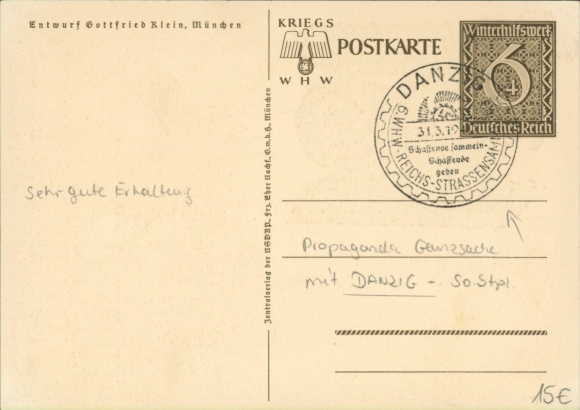 Entwurf Gottfried Klein, München
KRIEGS
WHW
POSTKARTE
Winterhilfswerk
6+4
Deutsches Reich
DANZIG
31.3.19
Schaffende sammeln-
Schaffende
geben
6.WHW-REICHS-STRASSENSAMM
Zentralverlag der NSDAP., Frz. Eher Nachf. G.m.b.H. München
Sehr gute Erhaltung
Propaganda Ganzsache
mit DANZIG - So.Stpl.
15€